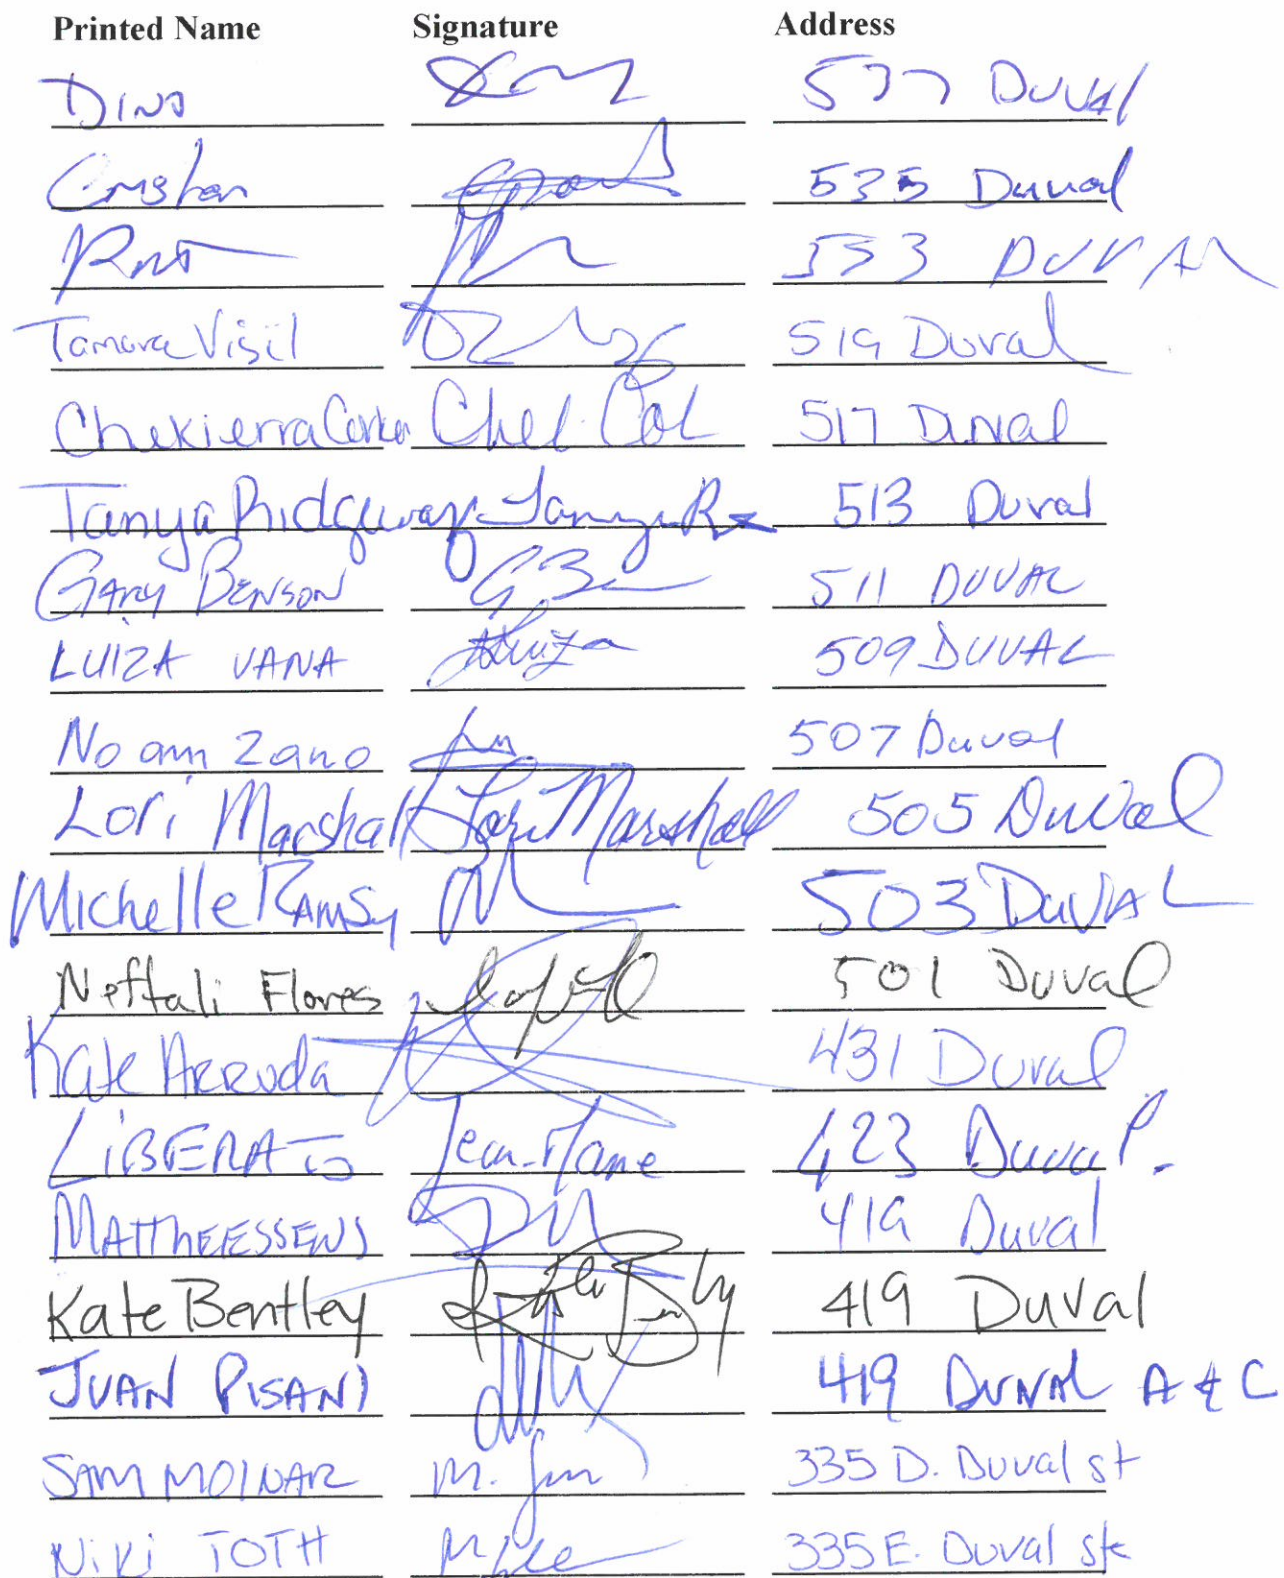 Printed Name Signature Address
Dino 537 Duval
Cristian 535 Duval
533 DUVAL
Tamara Vigil 519 Duval
Chekierra Chel. Col 517 Duval
Tanya Ridgeway Tanya R 513 Duval
GARY BENSON GB 511 DUVAL
LUIZA VANA Luiza 509 DUVAL
Noam Zano 507 Duval
Lori Marshall Lori Marshall 505 Duval
Michelle RAMSy 503 DUVAL
Neftali Flores 501 Duval
Kate ARRuda 431 Duval
LiBERATO Jean-Marie 423 Duval.
MATTHEESSENS 419 Duval
Kate Bentley 419 Duval
JUAN PISANI 419 DUVAL A & C
SAM MOLNAR M. Sam 335 D. Duval st
NiKi TOTH 335 E. Duval ste